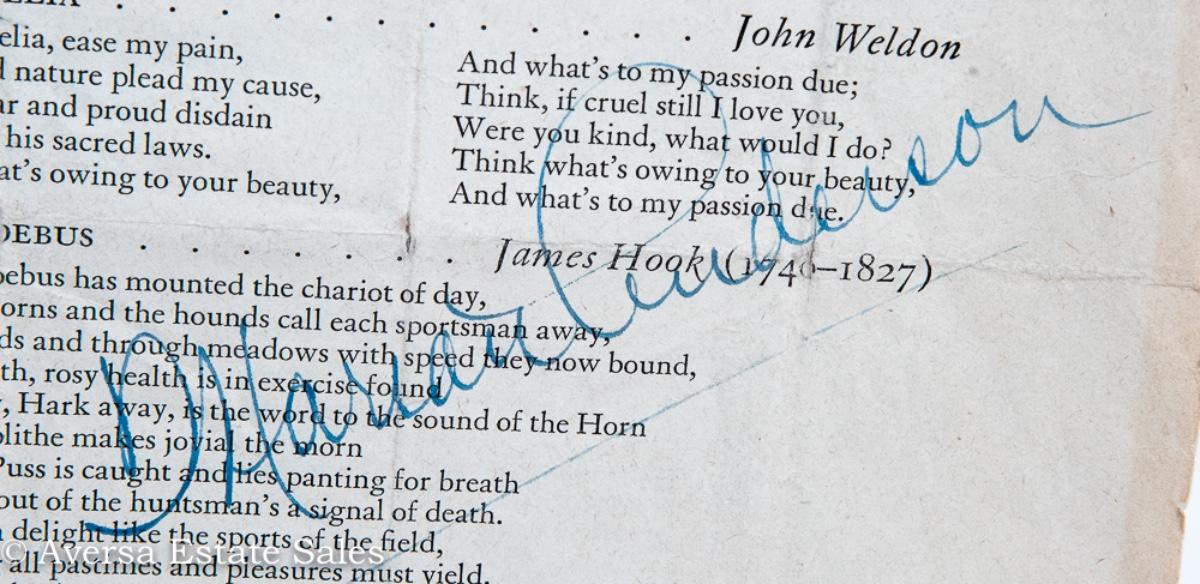 John Weldon
elia, ease my pain,
nature plead my cause,
ar and proud disdain
his sacred laws.
at's owing to your beauty,
And what's to my passion due;
Think, if cruel still I love you,
Were you kind, what would I do?
Think what's owing to your beauty,
And what's to my passion due.
OEBUS . . . . . . . James Hook (1746–1827)
oebus has mounted the chariot of day,
orns and the hounds call each sportsman away,
ds and through meadows with speed they now bound,
th, rosy health is in exercise found
, Hark away, is the word to the sound of the Horn
blithe makes jovial the morn
Puss is caught and lies panting for breath
out of the huntsman's a signal of death.
delight like the sports of the field,
all pastimes and pleasures must yield.
Marian Anderson
© Aversa Estate Sales